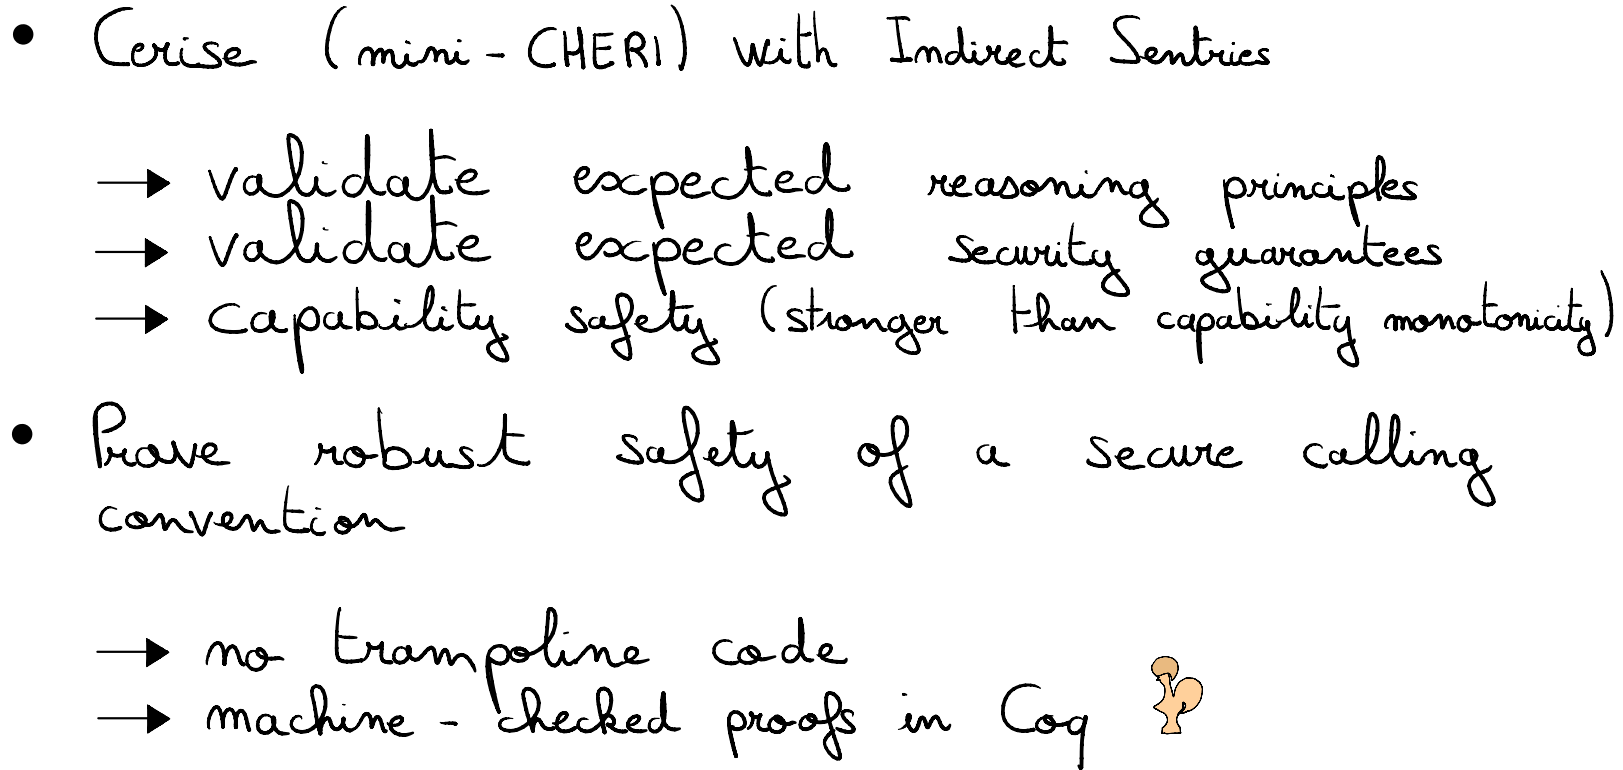 • Cerise (mini-CHERI) with Indirect Sentries
→ validate expected reasoning principles
→ validate expected security guarantees
→ capability safety (stronger than capability monotonicity)
• Prove robust safety of a secure calling
convention
→ no trampoline code
→ machine-checked proofs in Coq